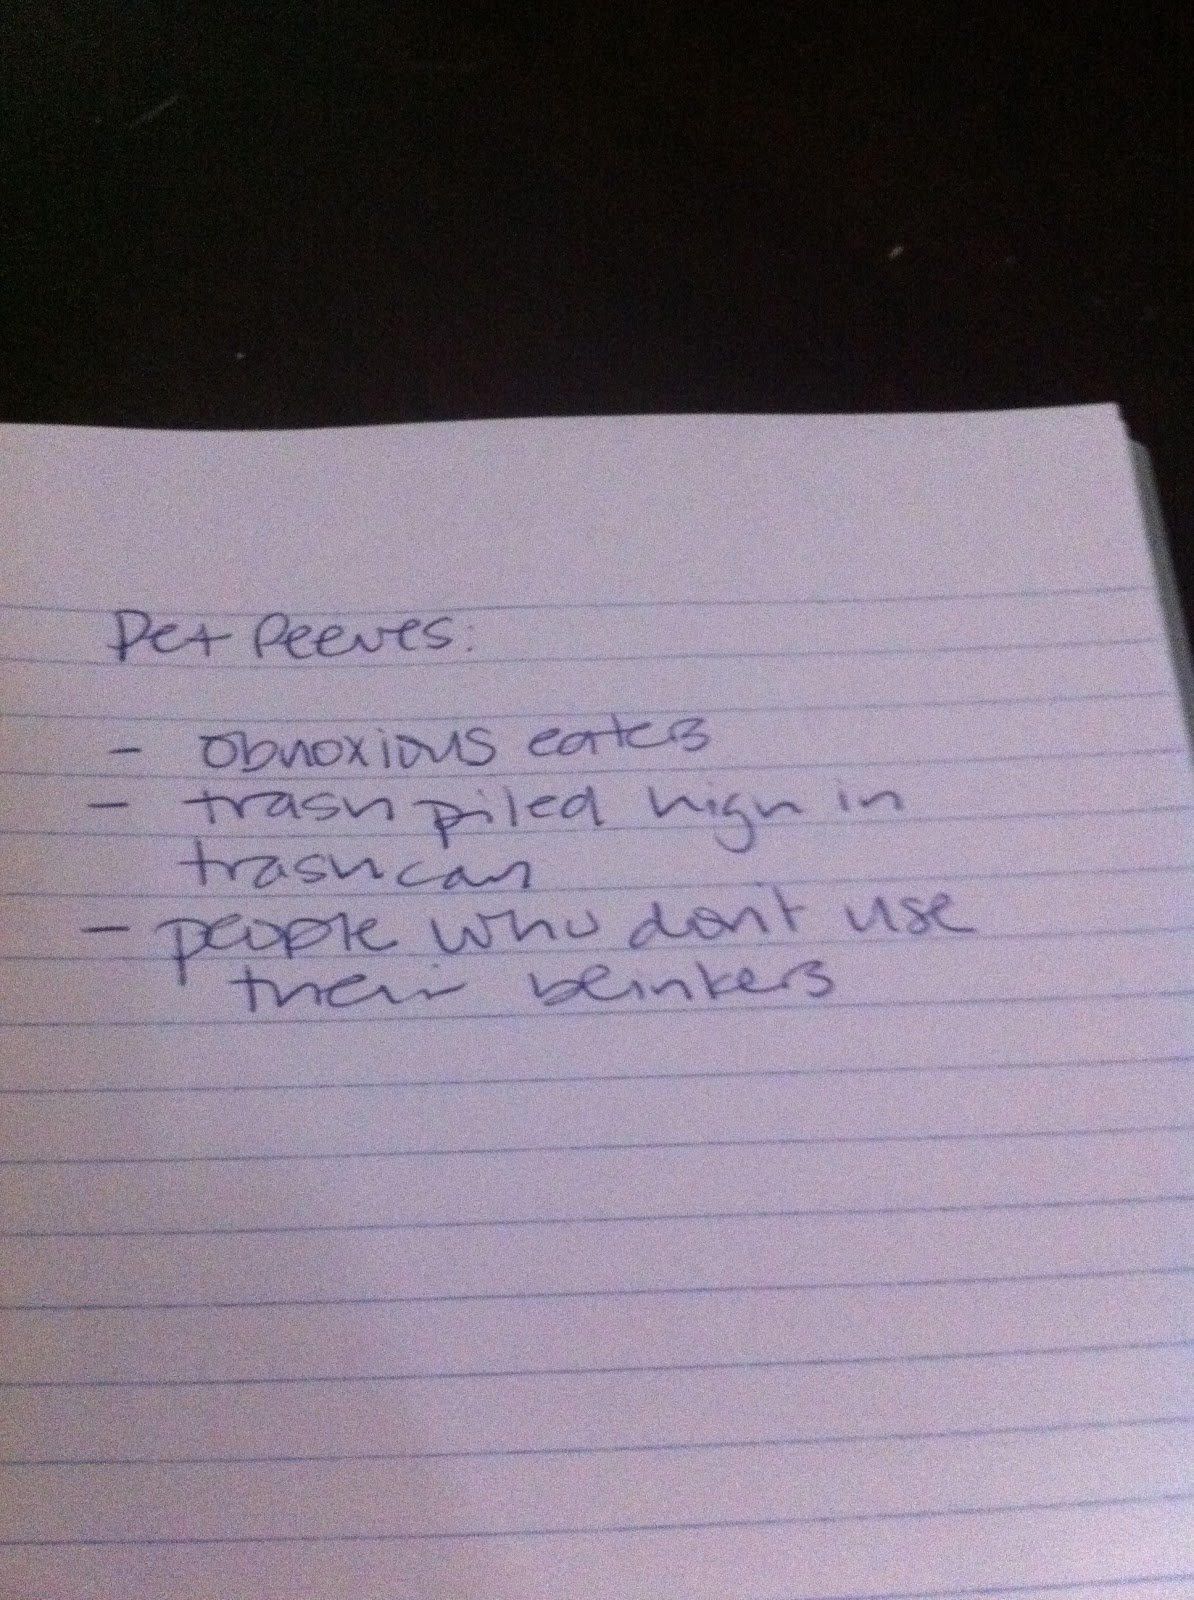 Pet Peeves:
- obnoxious eaters
- trash piled high in
trashcan
- people who don't use
their blinkers